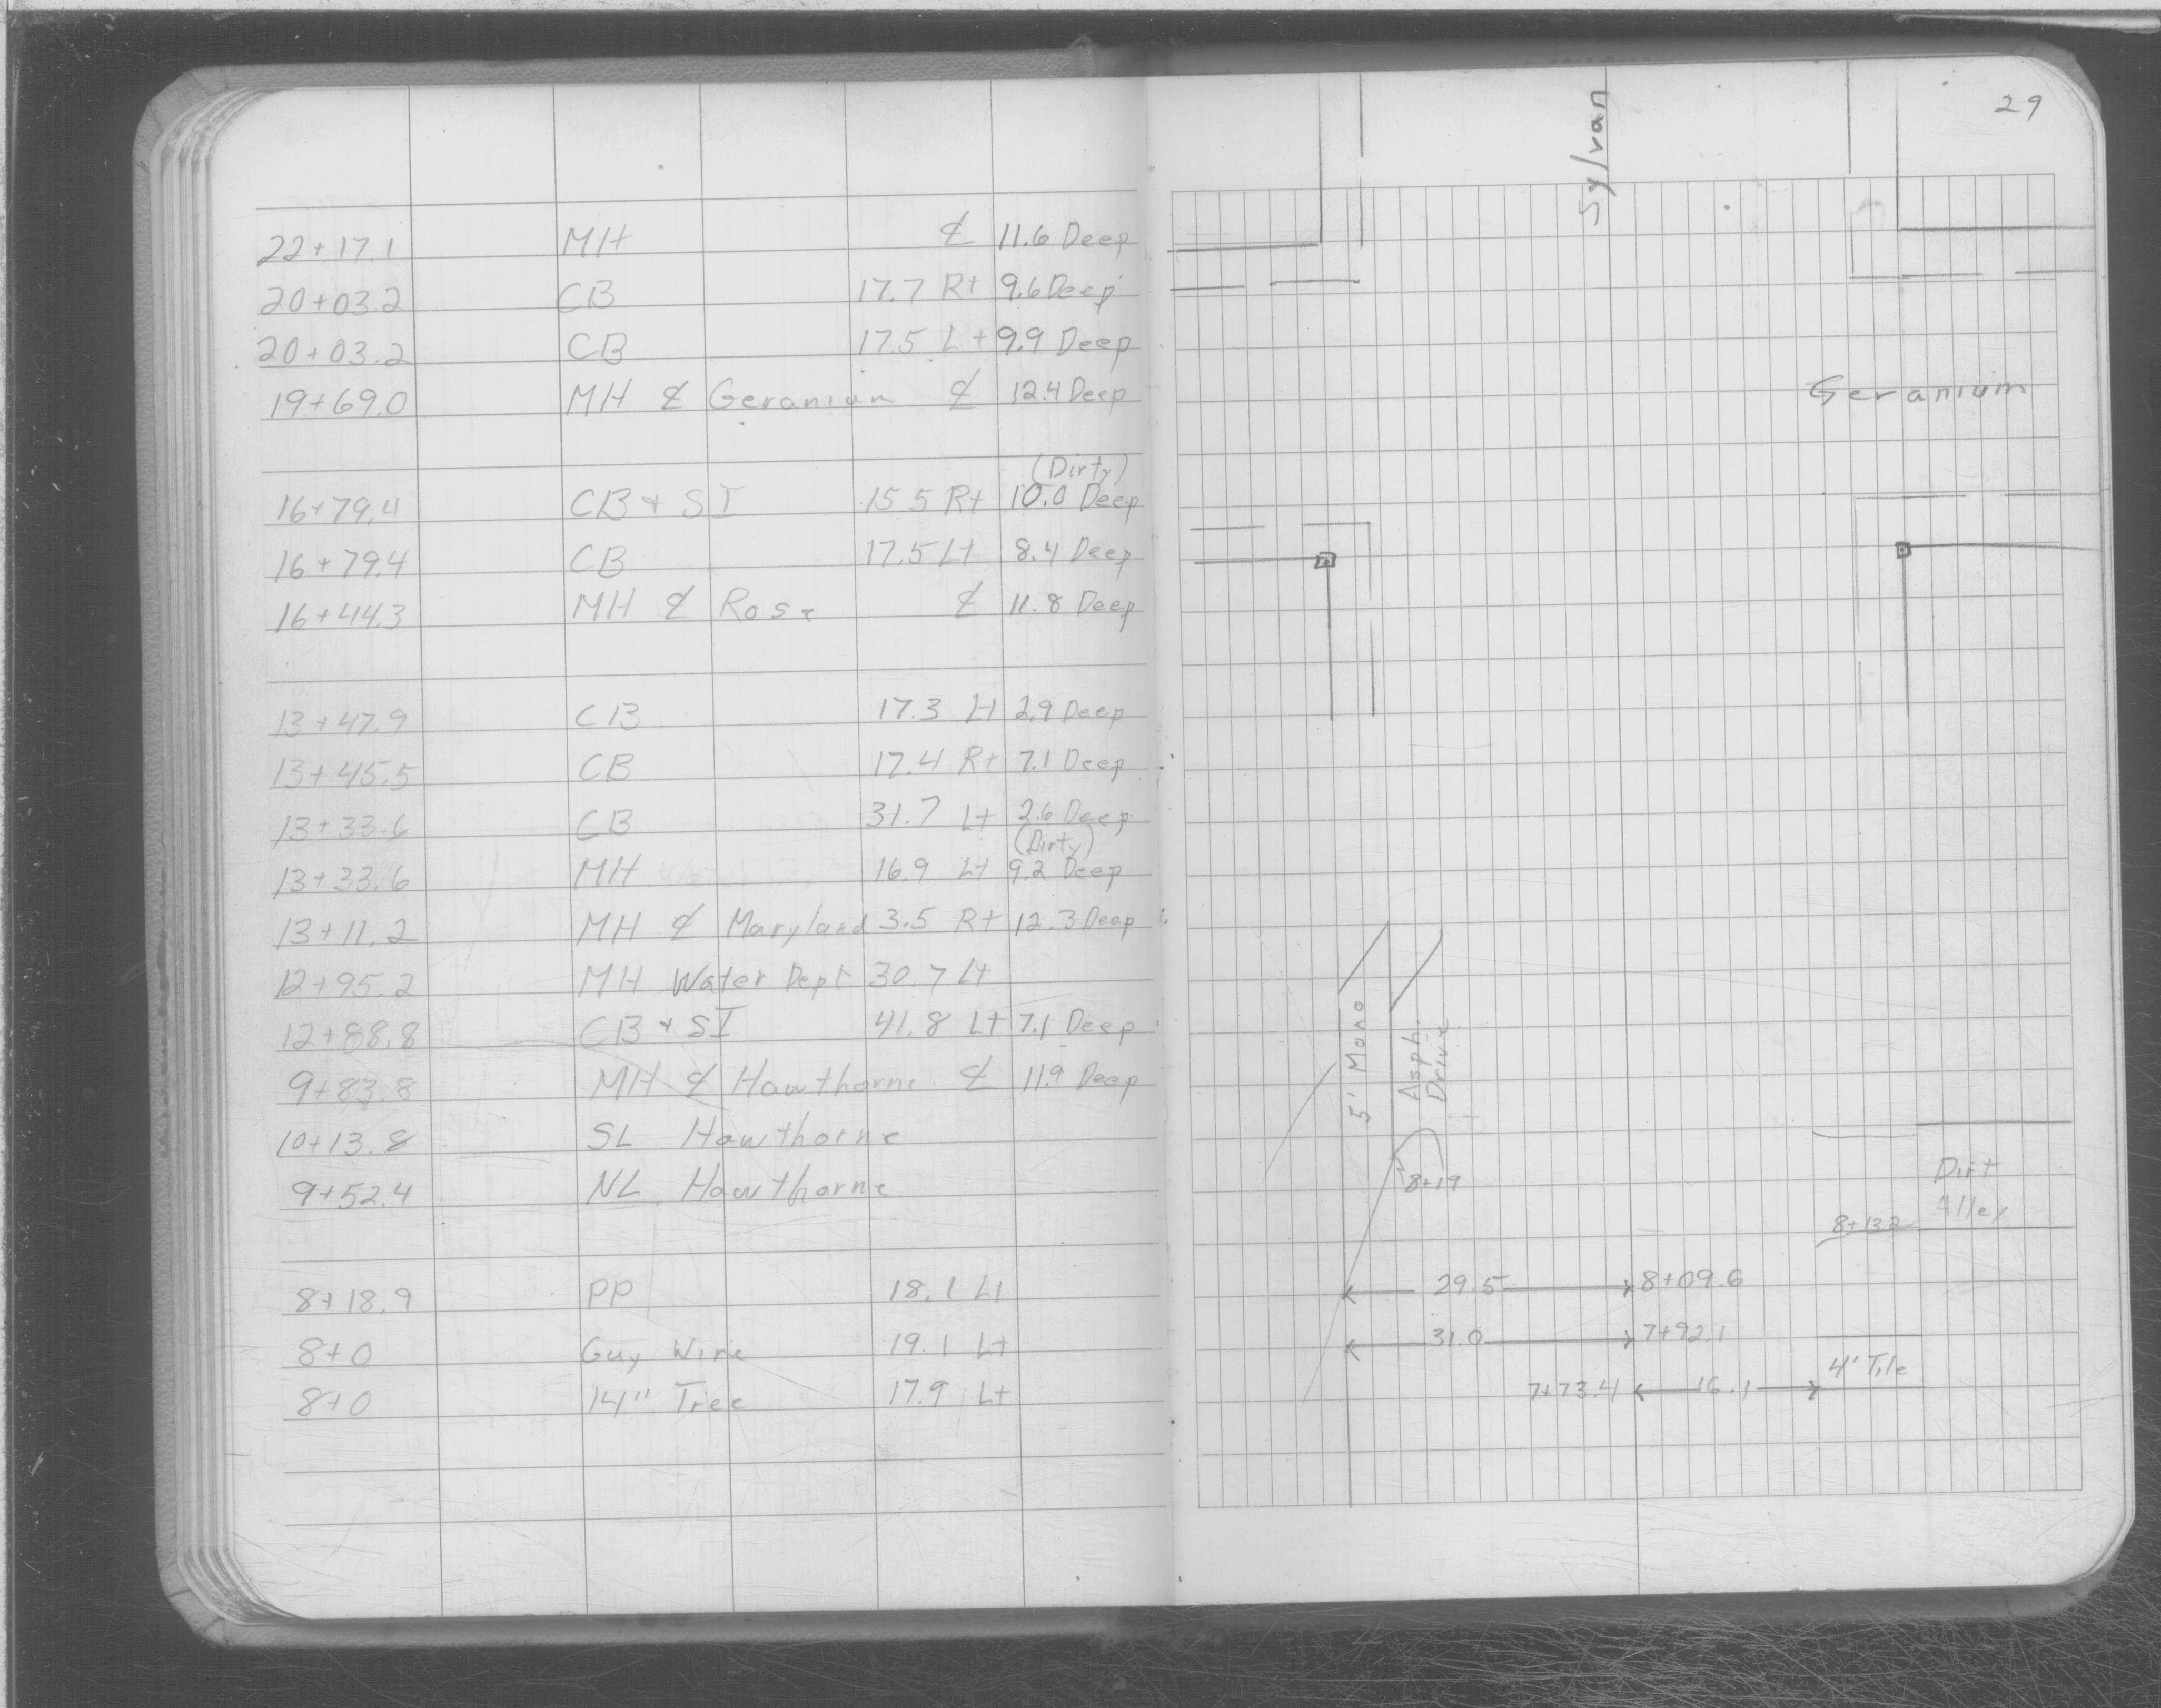 22+17.1 MH ℄ 11.6 Deep
20+03.2 CB 17.7 Rt 9.6 Deep
20+03.2 CB 17.5 Lt 9.9 Deep
19+69.0 MH ℄ Geranium ℄ 12.4 Deep
(Dirty)
16+79.4 CB + SI 15.5 Rt 10.0 Deep
16+79.4 CB 17.5 Lt 8.4 Deep
16+44.3 MH ℄ Rose ℄ 11.8 Deep
13+47.9 CB 17.3 Lt 2.9 Deep
13+45.5 CB 17.4 Rt 7.1 Deep
13+33.6 CB 31.7 Lt 2.6 Deep
(Dirty)
13+33.6 MH 16.9 Lt 9.2 Deep
13+11.2 MH ℄ Maryland 3.5 Rt 12.3 Deep
12+95.2 MH Water Dept 30.7 Lt
12+88.8 CB + SI 41.8 Lt 7.1 Deep
9+83.8 MH ℄ Hawthorne ℄ 11.9 Deep
10+13.8 SL Hawthorne
9+52.4 NL Hawthorne
8+18.9 PP 18.1 Lt
8+0 Guy Wire 19.1 Lt
8+0 14" Tree 17.9 Lt
29
Sylvan
Geranium
5' Mono
Asph.
Drive
8+19
Dirt
Alley
8+13.2
29.5 8+09.6
31.0 7+92.1
4' Tile
7+73.4 16.1